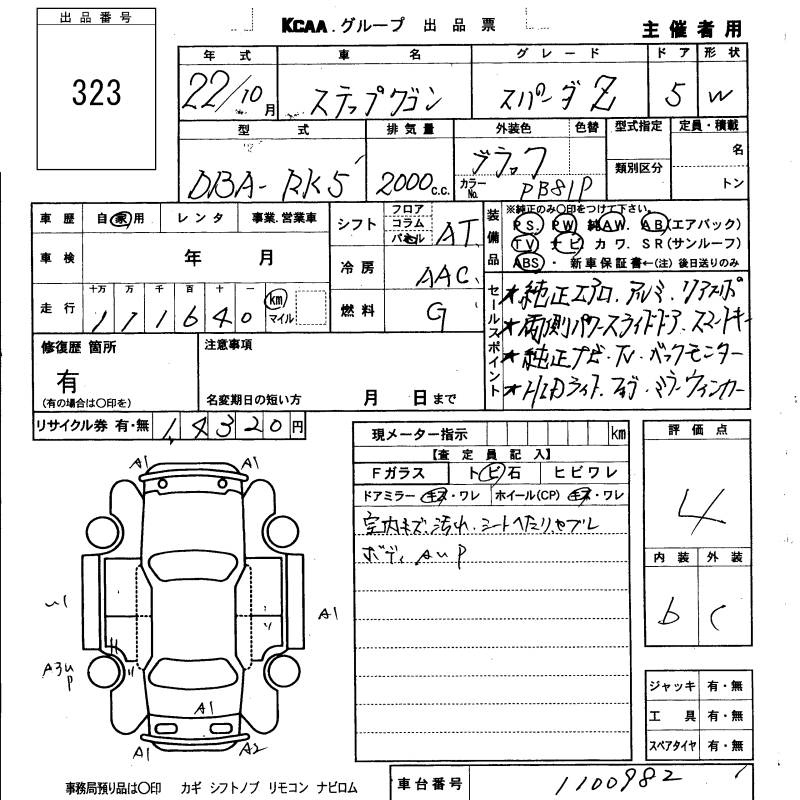 出品番号
323
KCAA.グループ 出品票
主催者用
年式 車名 グレード ドア 形状
22/10月 ステップワゴン スパーダ Z 5 W
型式 排気量 外装色 色替 型式指定 定員・積載
DBA-RK5 2000c.c. ブラック 類別区分 名
カラーNo. PB81P トン
車歴 自家用 レンタ 事業.営業車
車検 年 月
走行 十万 万 千 百 十 一 km マイル
1 1 1 6 4 0
シフト フロア コラム パネル AT
冷房 AAC
燃料 G
装備品
※純正のみ〇印をつけて下さい。
PS. PW 純AW. AB(エアバック)
TV ナビ カワ. SR(サンルーフ)
ABS・ 新車保証書←(注)後日送りのみ
セールスポイント
★純正エアロ.アルミ.リアスポ
★両側パワースライドドア.スマートキー
★純正ナビ.TV.バックモニター
★HIDライト.フォグ.ミラーウィンカー
修復歴 箇所
有
(有の場合は〇印を)
注意事項
名変期日の短い方 月 日まで
リサイクル券 有・無 14320円
現メーター指示 km
【査定員記入】
Fガラス トビ石 ヒビワレ
ドアミラー キズ・ワレ ホイール(CP) キズ・ワレ
室内キズ.汚れ.シートヘたり.ヤブレ
ボディ AuP
評価点
4
内装 外装
b c
ジャッキ 有・無
工具 有・無
スペアタイヤ 有・無
A1 A1
A1
A3uP
A1
A1 A2
事務局預り品は〇印 カギ シフトノブ リモコン ナビロム
車台番号 1100982